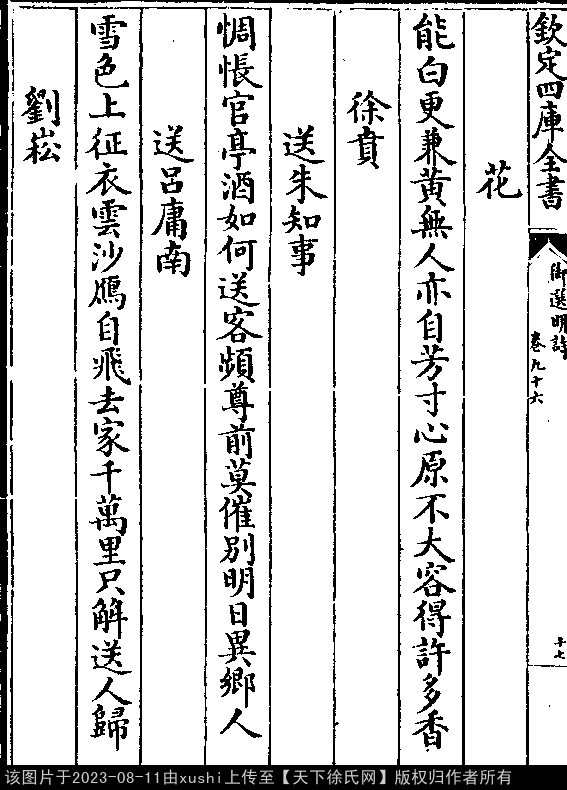 欽定四庫全書
御選明詩
卷九十六
十七
花
能白更兼黃無人亦自芳寸心原不大容得許多香
徐賁
送朱知事
惆悵官亭酒如何送客頻尊前莫催別明日異鄉人
送呂庸南
雪色上征衣雲沙鴈自飛去家千萬里只解送人歸
劉崧
该图片于2023-08-11由xushi上传至【天下徐氏网】版权归作者所有